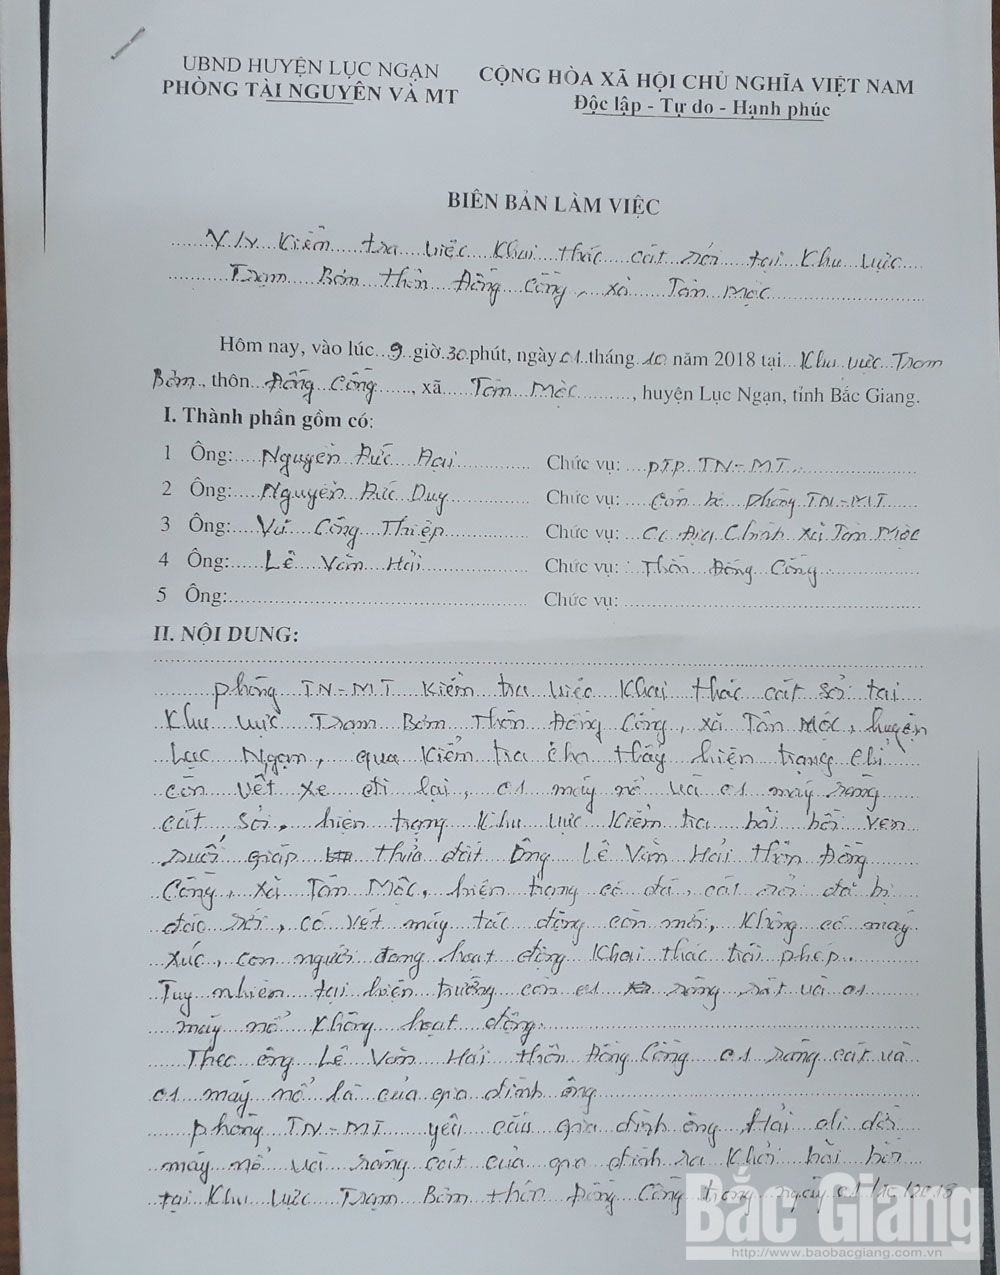 UBND HUYỆN LỤC NGẠN
PHÒNG TÀI NGUYÊN VÀ MT
CỘNG HÒA XÃ HỘI CHỦ NGHĨA VIỆT NAM
Độc lập - Tự do - Hạnh phúc
BIÊN BẢN LÀM VIỆC
V/v Kiểm tra việc Khai thác cát sỏi tại Khu vực
Trạm Bơm thôn Đồng Công, xã Tân Mộc
Hôm nay, vào lúc 9 giờ 30 phút, ngày 01 tháng 10 năm 2018 tại Khu vực Trạm
Bơm, thôn Đồng Công, xã Tân Mộc, huyện Lục Ngạn, tỉnh Bắc Giang.
I. Thành phần gồm có:
1 Ông: Nguyễn Đức Đại Chức vụ: PTP TN-MT
2 Ông: Nguyễn Đức Duy Chức vụ: Cán bộ Phòng TN-MT
3 Ông: Vũ Công Thiệp Chức vụ: CC Địa Chính xã Tân Mộc
4 Ông: Lê Văn Hải Chức vụ: Thôn Đồng Công
5 Ông: Chức vụ:
II. NỘI DUNG:
Phòng TN-MT Kiểm tra việc Khai thác cát sỏi tại
Khu vực Trạm Bơm Thôn Đồng Công, xã Tân Mộc, huyện
Lục Ngạn, qua Kiểm tra cho thấy hiện trạng chỉ
còn vết xe đi lại, 01 máy nổ và 01 máy sàng
cát, sỏi, hiện trạng Khu vực Kiểm tra bãi bồi ven
suối giáp thửa đất ông Lê Văn Hải thôn Đồng
Công, xã Tân Mộc, hiện trạng có đá, cát sỏi đã bị
đào xới, có vết máy tác động còn mới, Không có máy
xúc, con người đang hoạt động Khai thác trái phép.
Tuy nhiên tại hiện trường còn 01 sàng cát và 01
máy nổ Không hoạt động.
Theo ông Lê Văn Hải thôn Đồng Công 01 sàng cát và
01 máy nổ là của gia đình ông
Phòng TN-MT yêu cầu gia đình ông Hải di dời
máy nổ và sàng cát của gia đình ra Khỏi bãi bồi
tại Khu vực Trạm Bơm thôn Đồng Công trong ngày 01/10/2018
Bắc Giang
http://www.baobacgiang.com.vn